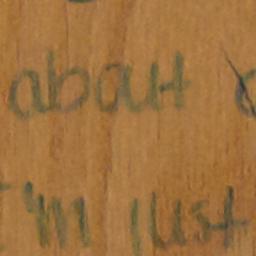 about
I'm just